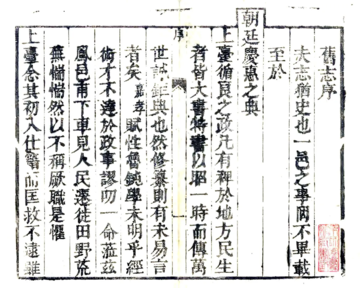 舊志序
夫志猶史也一邑之事罔不畢載
至於
朝廷慶惠之典
上臺循良之政凡有裨於地方民生
者皆大書特書以昭一時而傳萬
世誠鉅典也然修纂則有未易言
者矣嘉孝賦性魯鈍學未明乎經
術才不達於政事謬叨一命蒞茲
鳳邑甫下車見人民遷徙田野荒
蕪惴惴然以不稱厥職是懼
上臺念其初入仕警而匡救不逮雖
序